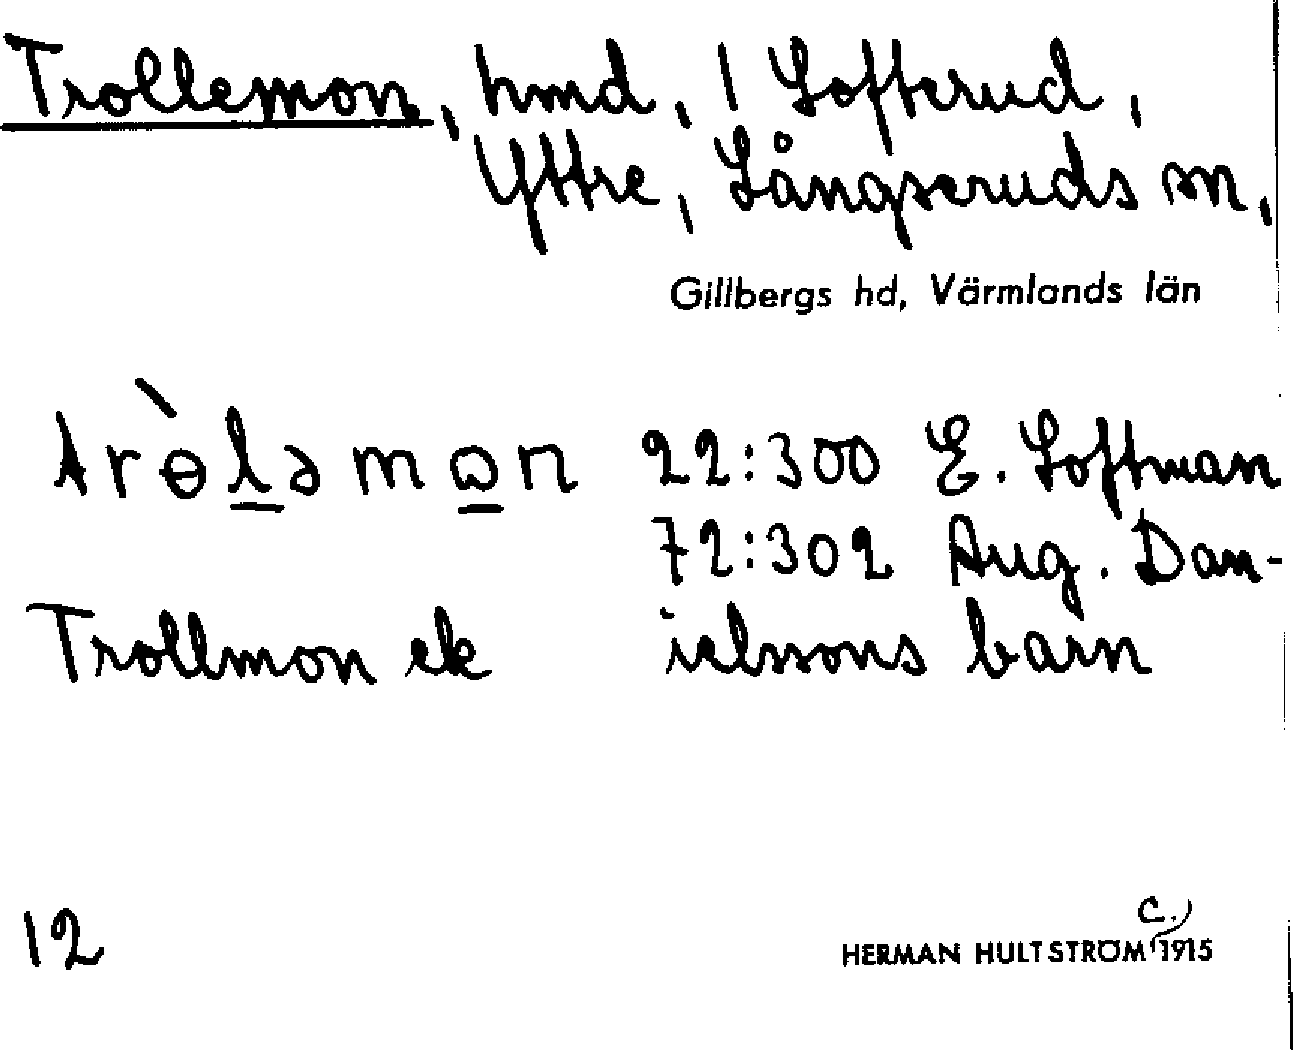 Trollemon, hmd, 1 Lofterud,
Yttre, Långseruds sn,
Gillbergs hd, Värmlands län
trɵ̀lǝmꞷn 22:300 E. Loftman
72:302 Aug. Dan-
Trollmon ek ielssons barn
12
c.
HERMAN HULTSTRÖM 1915